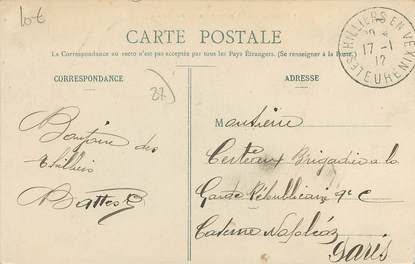 10€
CARTE POSTALE
La Correspondance au recto n'est pas acceptée par tous les Pays Étrangers. (Se renseigner à la Poste)
LES THILLIERS EN VEXIN
17-1
12
EURE
CORRESPONDANCE
ADRESSE
27
Bonjour des
thilliers
M onsieur
Brigadier a la
Garde Républicaine 9e C
Caserne Napoléon
Paris